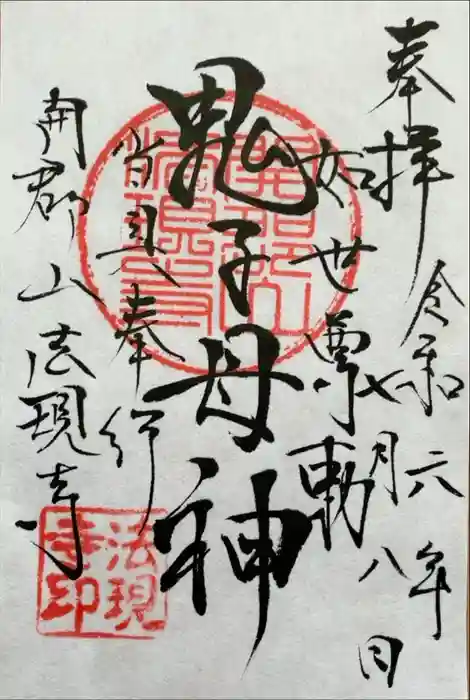 奉拝
令和六年
七月八日
如世尊勅
鬼子母神
當具奉行
開郡山法現寺
法現
寺印